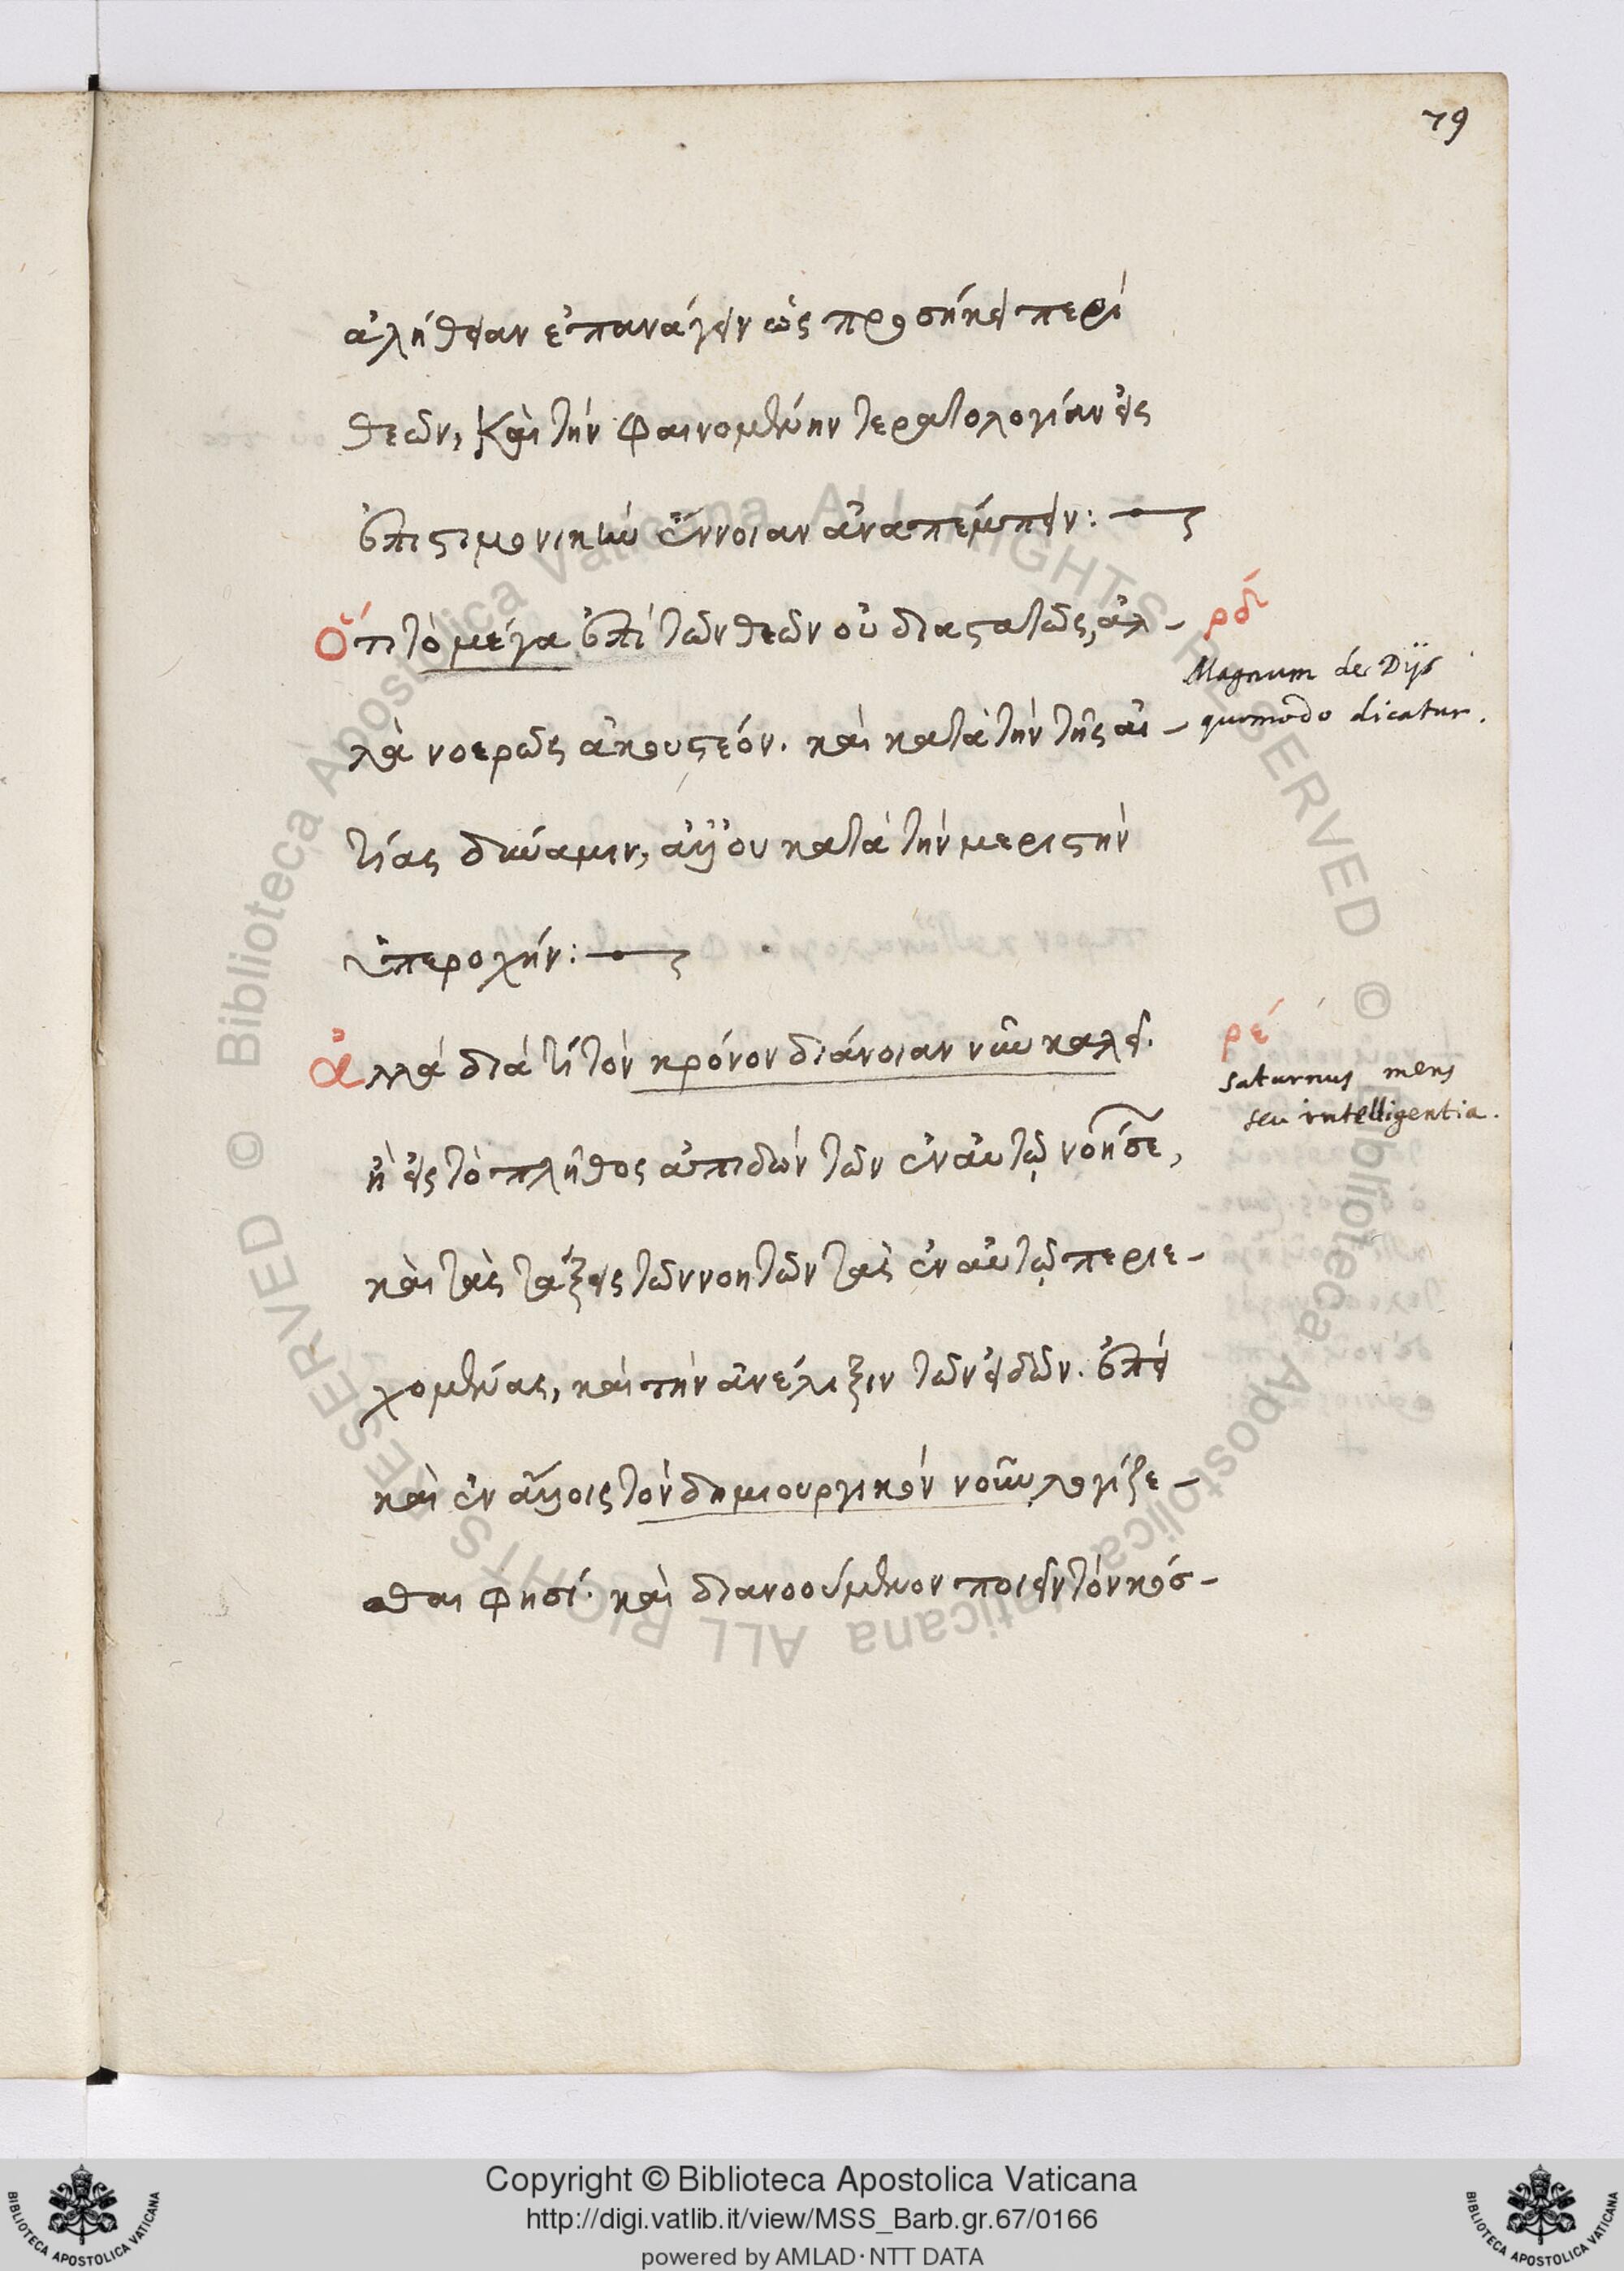 79
ἀλήθειαν ἐπανάγειν ὡς προσήκει περὶ
θεῶν, καὶ τὴν φαινομένην τερατολογίαν εἰς
ἐπιστημονικὴν ἔννοιαν ἀναπέμπειν:
Ὅτι τὸ μέγα ἐπὶ τῶν θεῶν οὐ διαστατῶς, ἀλ-
ρδ´
Magnum de Dijs
λὰ νοερῶς ἀκουστέον. καὶ κατὰ τὴν τῆς αἰ-
quomodo dicatur.
τίας δύναμιν, ἀλλ' οὐ κατὰ τὴν μεριστὴν
ὑπεροχήν:
Ἀλλὰ διὰ τί τὸν κρόνον διάνοιαν νῦν καλεῖ.
ρέ
saturnus mens
seu intelligentia.
ἢ εἰς τὸ πλῆθος ἀπιδὼν τῶν ἐν αὐτῷ νοήσε,
καὶ τὰς τάξεις τῶν νοητῶν τὰς ἐν αὐτῷ περιε-
χομένας, καὶ τὴν ἀνέλιξιν τῶν εἰδῶν. ἐπεὶ
καὶ ἐν ἄλλοις τὸν δημιουργικὸν νοῦν λογίζε-
σθαι φησί. καὶ διανοούμενον ποιεῖν τὸν κόσ-
Copyright © Biblioteca Apostolica Vaticana
http://digi.vatlib.it/view/MSS_Barb.gr.67/0166
powered by AMLAD · NTT DATA
BIBLIOTECA APOSTOLICA VATICANA
BIBLIOTECA APOSTOLICA VATICANA
© Biblioteca Apostolica Vaticana ALL RIGHTS RESERVED
© Biblioteca Apostolica Vaticana ALL RIGHTS RESERVED